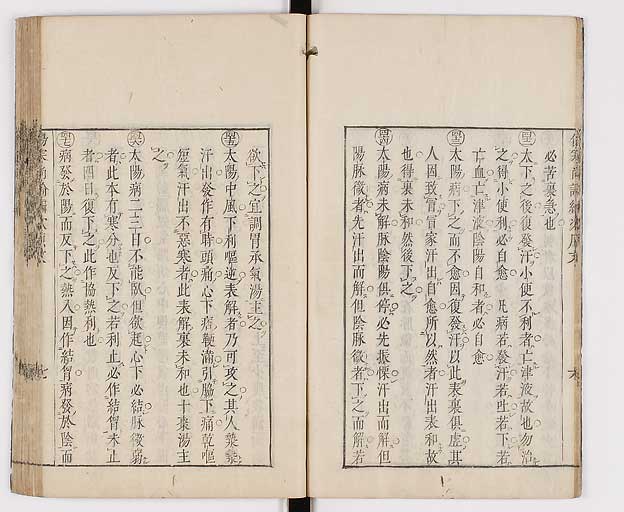 必苦裏急也
太下之後復發汗小便不利者亡津液故也勿治
之得小便利必自愈　凡病若發汗若吐若下若
亡血亡津液陰陽自和者必自愈
太陽病下之而不愈因復發汗以此表裏俱虛其
人因致冒冒家汗出自愈所以然者汗出表和故
也得裏未和然後下之
太陽病未解脉陰陽俱停必先振慄汗出而解但
陽脉微者先汗出而解但陰脉微者下之而解若
欲下之宜調胃承氣湯主之
太陽中風下利嘔逆表解者乃可攻之其人漐漐
汗出發作有時頭痛心下痞鞕滿引脇下痛乾嘔
短氣汗出不惡寒者此表解裏未和也十棗湯主
之
太陽病二三日不能臥但欲起心下必結脉微弱
者此本有寒分也反下之若利止必作結胷未止
者四日復下之此作協熱利也
病發於陽而反下之熱入因作結胷病發於陰而